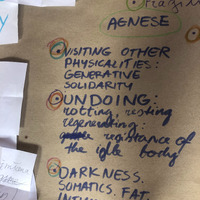 AGNESE
VISITING OTHER
PHYSICALITIES:
GENERATIVE
SOLIDARITY
UNDOING:
rotting, resting
regenerating:
resistance of
the idle body
DARKNESS.
SOMATICS. FAT.